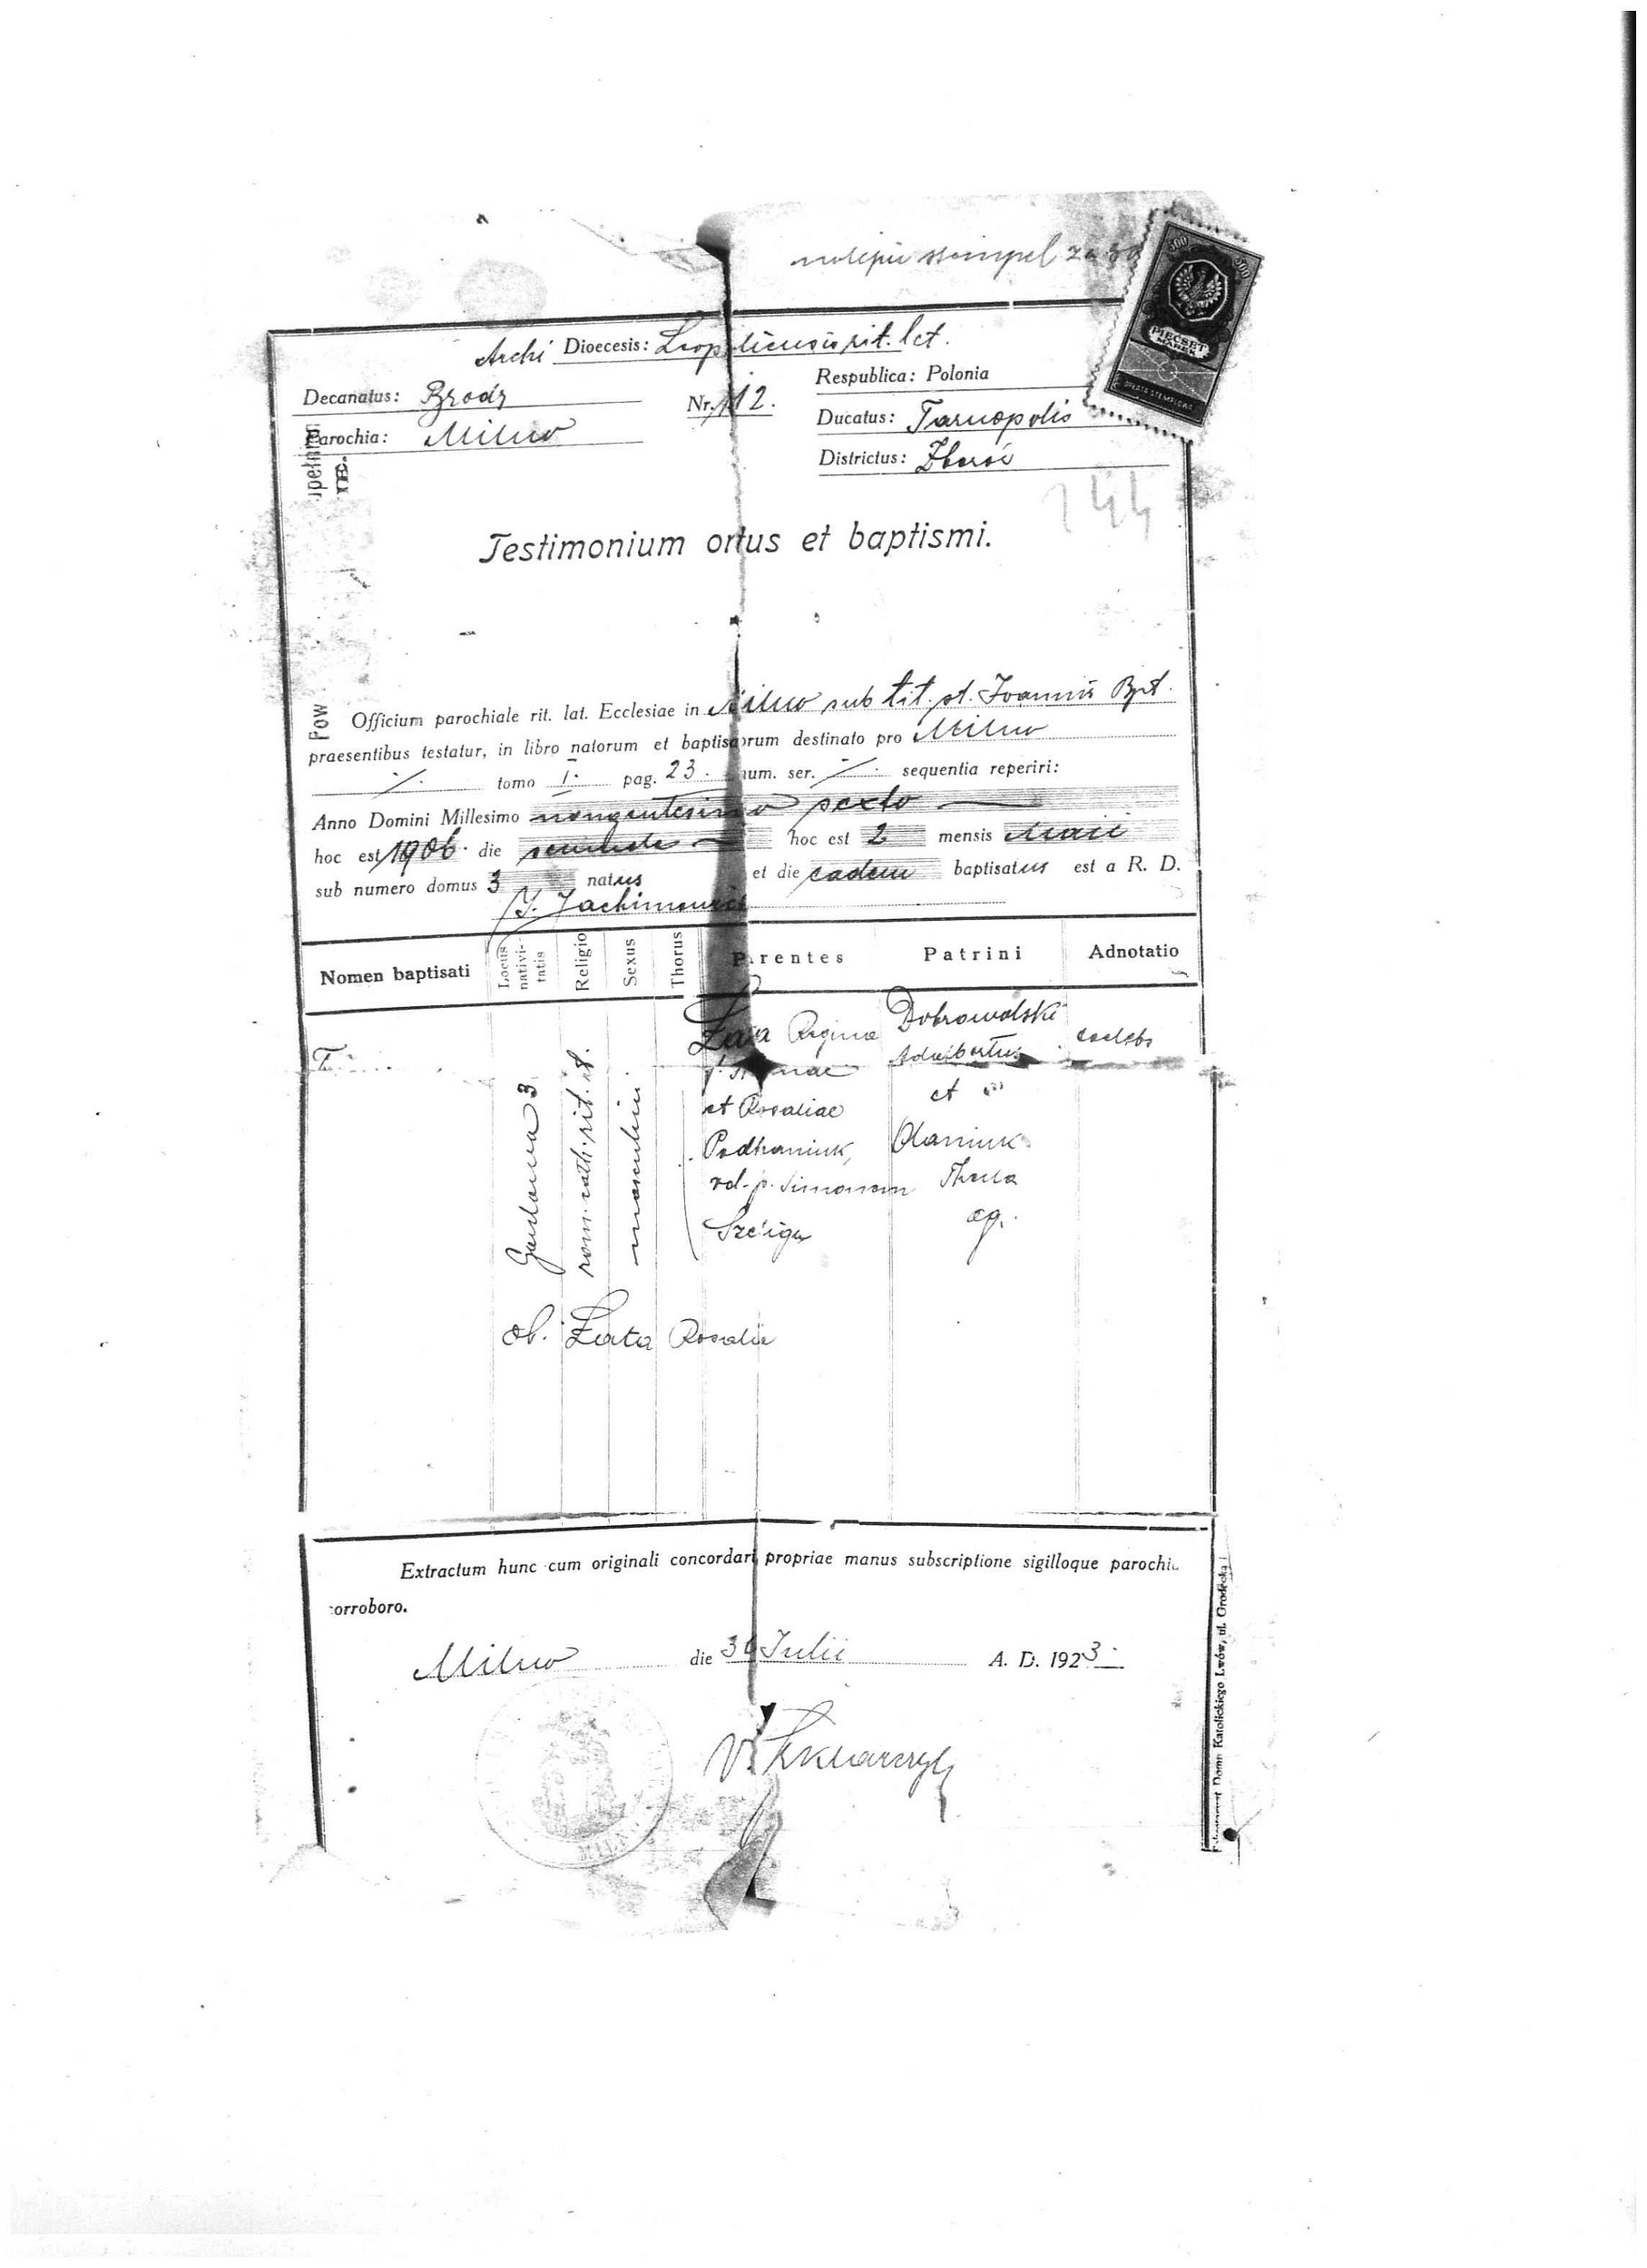 stempel za
500 500
PIĘĆSET
MAREK
OPŁATA STEMPLOWA
Archi Dioecesis: Leopoliensis rit. lat.
Decanatus: Brody
Nr. 112.
Respublica: Polonia
Parochia: Milno
Ducatus: Tarnopolis
Districtus: Zboró
144
Testimonium ortus et baptismi.
Officium parochiale rit. lat. Ecclesiae in Milno sub tit. st. Joannis Bpt.
praesentibus testatur, in libro natorum et baptisatorum destinato pro Milno
tomo I. pag. 23. num. ser. sequentia reperiri:
Anno Domini Millesimo nongentesimo sexto
hoc est 1906. die secunda hoc est 2 mensis Maii
sub numero domus 3 natus et die eadem baptisatus est a R. D.
J. Jachimowicz
Nomen baptisati Locus nativi-tatis Religio Sexus Thorus Parentes Patrini Adnotatio
Gontowa 3
rom. cath. rit. lat.
masculin.
Regina
et Rosaliae
Podhaniuk,
Simonem
Dobrowolski
Adalbertus
et
Olaniuk
Thecla
ag.
caelebs
ob. Łata Rosalia
Extractum hunc cum originali concordare propriae manus subscriptione sigilloque parochi
corroboro.
Milno die 30 Julii A. D. 1923.
MILNO
Domu Katolickiego Lwów, ul. Gródecka